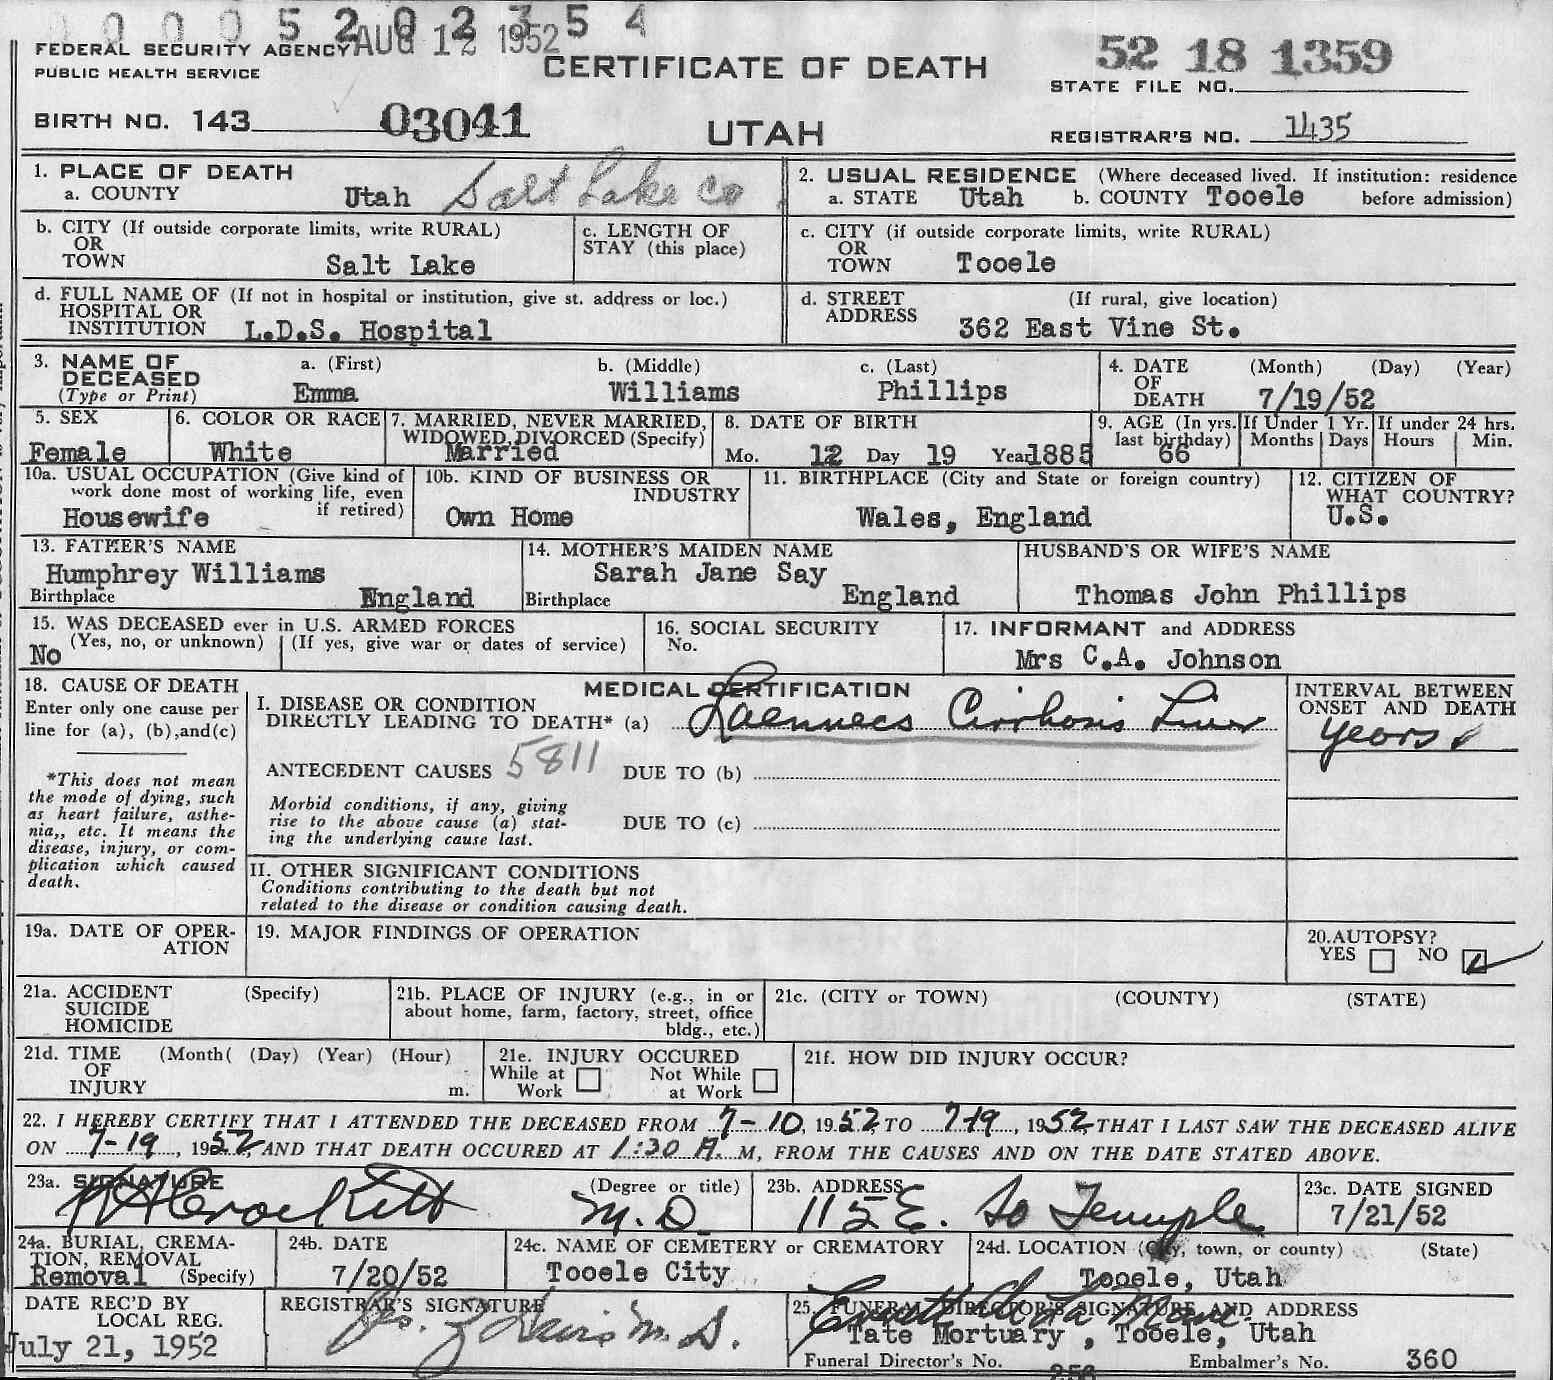 0 0 0 0 5 2 0 2 3 5 4
AUG 12 1952
FEDERAL SECURITY AGENCY
PUBLIC HEALTH SERVICE
CERTIFICATE OF DEATH
52 18 1359
STATE FILE NO.
BIRTH NO. 143 03041
UTAH
REGISTRAR'S NO. 1435
1. PLACE OF DEATH
a. COUNTY Utah Salt Lake Co
2. USUAL RESIDENCE (Where deceased lived. If institution: residence
a. STATE Utah b. COUNTY Tooele before admission)
b. CITY (If outside corporate limits, write RURAL)
OR
TOWN Salt Lake
c. LENGTH OF
STAY (this place)
c. CITY (if outside corporate limits, write RURAL)
OR
TOWN Tooele
d. FULL NAME OF (If not in hospital or institution, give st. address or loc.)
HOSPITAL OR
INSTITUTION L.D.S. Hospital
d. STREET (If rural, give location)
ADDRESS 362 East Vine St.
3. NAME OF
DECEASED
(Type or Print)
a. (First)
Emma
b. (Middle)
Williams
c. (Last)
Phillips
4. DATE (Month) (Day) (Year)
OF
DEATH 7/19/52
5. SEX
Female
6. COLOR OR RACE
White
7. MARRIED, NEVER MARRIED,
WIDOWED, DIVORCED (Specify)
Married
8. DATE OF BIRTH
Mo. 12 Day 19 Year 1885
9. AGE (In yrs.
last birthday)
66
If Under 1 Yr.
Months Days
If under 24 hrs.
Hours Min.
10a. USUAL OCCUPATION (Give kind of
work done most of working life, even
if retired)
Housewife
10b. KIND OF BUSINESS OR
INDUSTRY
Own Home
11. BIRTHPLACE (City and State or foreign country)
Wales, England
12. CITIZEN OF
WHAT COUNTRY?
U.S.
13. FATHER'S NAME
Humphrey Williams
Birthplace England
14. MOTHER'S MAIDEN NAME
Sarah Jane Say
Birthplace England
HUSBAND'S OR WIFE'S NAME
Thomas John Phillips
15. WAS DECEASED ever in U.S. ARMED FORCES
(Yes, no, or unknown) (If yes, give war or dates of service)
No
16. SOCIAL SECURITY
No.
17. INFORMANT and ADDRESS
Mrs C.A. Johnson
18. CAUSE OF DEATH
Enter only one cause per
line for (a), (b), and (c)
*This does not mean
the mode of dying, such
as heart failure, asthe-
nia,, etc. It means the
disease, injury, or com-
plication which caused
death.
MEDICAL CERTIFICATION
I. DISEASE OR CONDITION
DIRECTLY LEADING TO DEATH* (a) Laennecs Cirrhosis Liver
ANTECEDENT CAUSES 5811 DUE TO (b)
Morbid conditions, if any, giving
rise to the above cause (a) stat-
ing the underlying cause last.
DUE TO (c)
INTERVAL BETWEEN
ONSET AND DEATH
years
II. OTHER SIGNIFICANT CONDITIONS
Conditions contributing to the death but not
related to the disease or condition causing death.
19a. DATE OF OPER-
ATION
19. MAJOR FINDINGS OF OPERATION
20. AUTOPSY?
YES NO
21a. ACCIDENT (Specify)
SUICIDE
HOMICIDE
21b. PLACE OF INJURY (e.g., in or
about home, farm, factory, street, office
bldg., etc.)
21c. (CITY or TOWN) (COUNTY) (STATE)
21d. TIME (Month( (Day) (Year) (Hour)
OF
INJURY m.
21e. INJURY OCCURED
While at Work Not While at Work
21f. HOW DID INJURY OCCUR?
22. I HEREBY CERTIFY THAT I ATTENDED THE DECEASED FROM 7-10, 1952, TO 7-19, 1952, THAT I LAST SAW THE DECEASED ALIVE
ON 7-19, 1952, AND THAT DEATH OCCURED AT 1:30 A. M, FROM THE CAUSES AND ON THE DATE STATED ABOVE.
23a. SIGNATURE (Degree or title)
Crockett M.D.
23b. ADDRESS
115 E. So Temple
23c. DATE SIGNED
7/21/52
24a. BURIAL, CREMA-
TION, REMOVAL
Removal (Specify)
24b. DATE
7/20/52
24c. NAME OF CEMETERY or CREMATORY
Tooele City
24d. LOCATION (City, town, or county) (State)
Tooele, Utah
DATE REC'D BY
LOCAL REG.
July 21, 1952
REGISTRAR'S SIGNATURE
M.D.
25. FUNERAL DIRECTOR'S SIGNATURE AND ADDRESS
Tate Mortuary , Tooele, Utah
Funeral Director's No. 256 Embalmer's No. 360